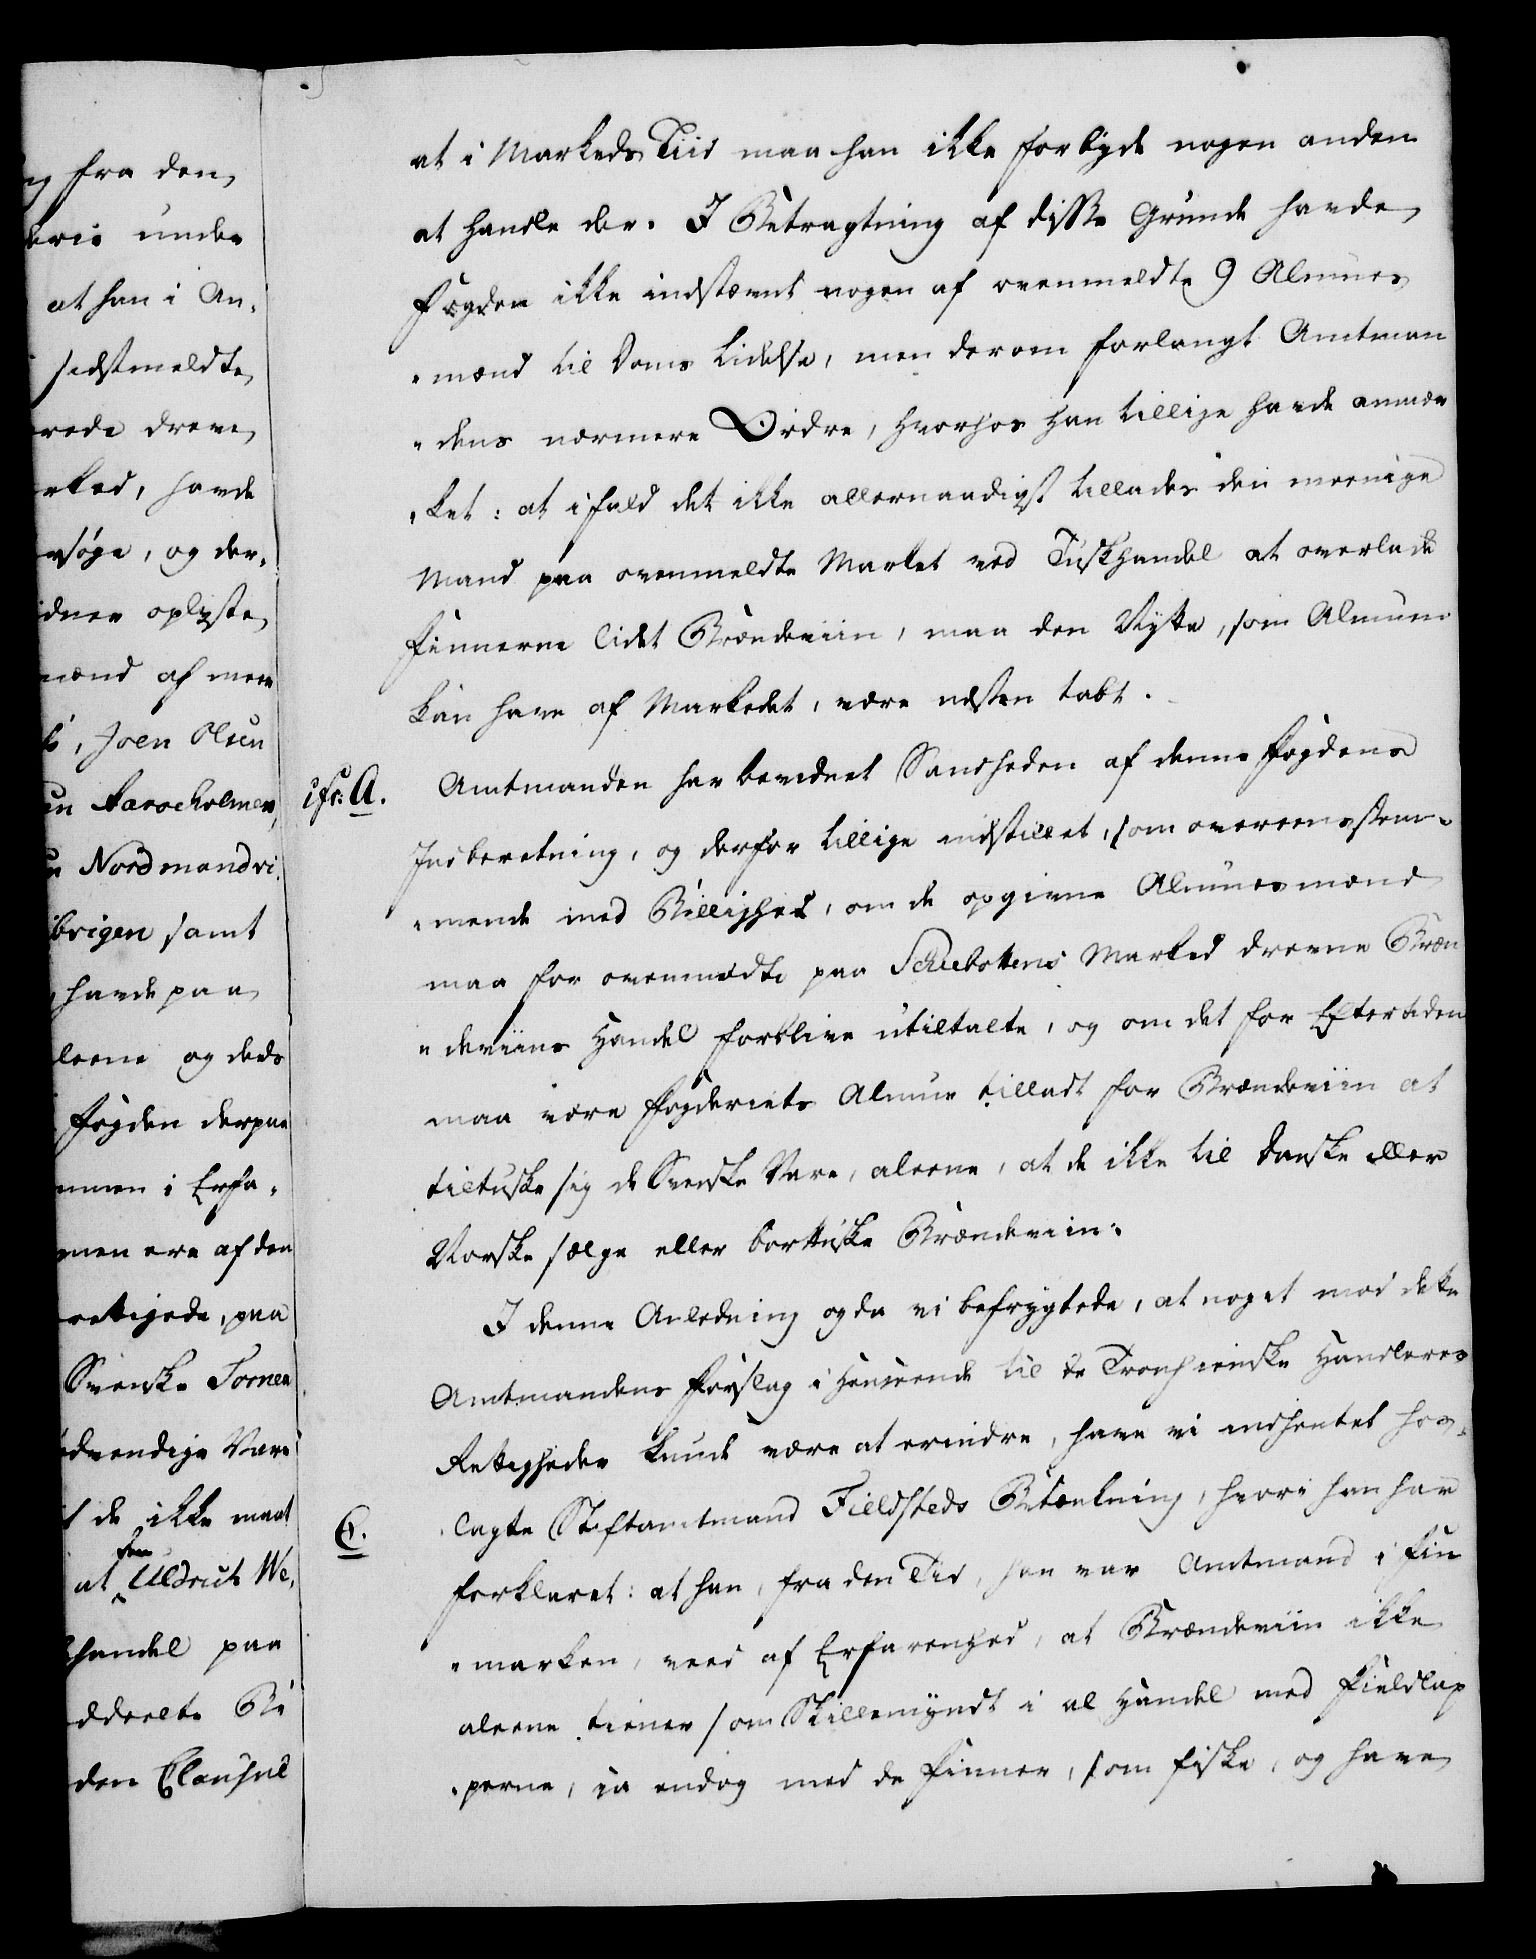 g fra den
under
at han i An-
sidstmeldte
rede dreve
rked, havde
søge, og der-
idner oplyste
mænd af
Joen Olsen
en Aaroeholmen,
Nordmandvi-
brigen samt
havde paa
leene og deds
Fogden derpaa
mmen i Erfa-
men ere af den
rettigede, paa
Svenske Tornea
ødvendige Vare
de ikke maat
at Uldrich We-
handel paa
ddeelte Be
den Clausul
at i Markeds Tiid maa han ikke forbyde nogen anden
at handle der. I Betragtning af disse Grunde havde
Fogden ikke indstævnt nogen af ovenmeldte 9 Almues
"mænd til Doms Lidelse, men derom forlangt Amtman
"dens nærmere Ordre, hvorhos han tillige havde anmær
"ket: at ifald det ikke allernaadigst tillades den meenige
Mand paa ovenmeldte Market ved Tuskhandel at overlade
Finnerne lidet Brændeviin, maa den Nytte, som Almuen
kan have af Markedet, være næsten tabt.
cfr: A.
Amtmanden har bevidnet Sandheden af denne Fogdens
Indberetning, og derfor tillige indstillet, som overeensstem-
"mende med Billighed, om de opgivne Almuesmænd
maa for ovenmeldte paa Schibottens Marked drevne Bræn
"deviins Handel forblive utiltalte, og om det for Eftertiden
maa være Fogderiets Almue tilladt for Brændeviin at
tiltuske sig de Svenske Vare, aleene, at de ikke til Danske eller
Norske sælge eller borttuske Brændeviin.
I denne Anledning og da vi befrygtede, at noget mod dette
Amtmandens Forslag i Henseende til de Tronhiemske Handleres
Rettigheder kunde være at erindre, have vi indhentet hos-
C.
lagte Stiftamtmand Fieldsteds Betænkning, hvori han har
forklaret: at han, fra den Tid, han var Amtmand i Fin
"marken, veed af Erfarenhed, at Brændeviin ikke
aleene tiener som Skillemyndt i al Handel med Fieldlap
"perne, ja endog med de Finner, som fiske, og have